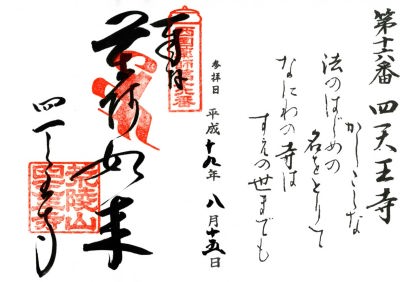 第十六番 四天王寺
かしこしな
法のはじめの
名をとりて
なにわの寺は
すえの世までも
参拝日 平成十九年 八月十五日
奉拝
西国薬師第十六番
薬師如来
四天王寺
荒陵山
四天王寺